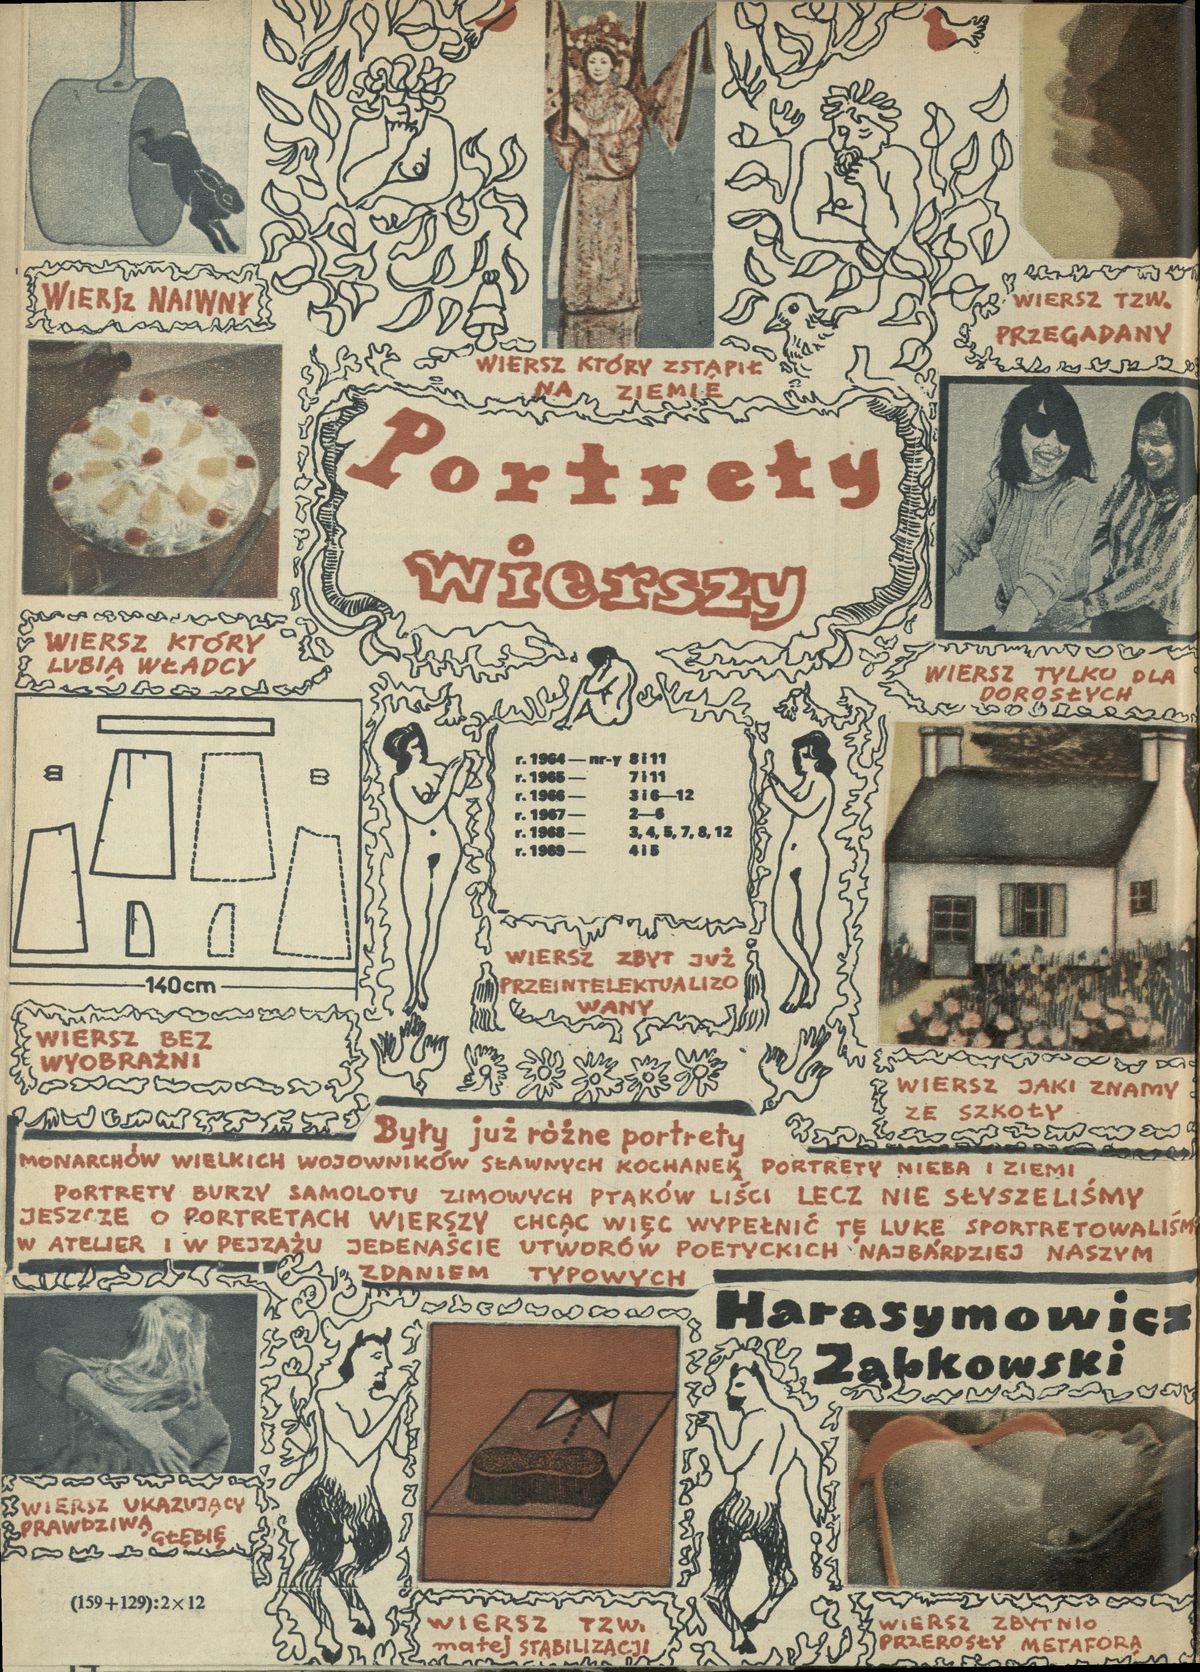 WIERSZ NAIWNY
WIERSZ KTÓRY ZSTĄPIŁ
NA ZIEMIE
WIERSZ TZW.
PRZEGADANY
Portrety
wierszy
WIERSZ KTÓRY
LUBIĄ WŁADCY
WIERSZ TYLKO DLA
DOROSŁYCH
r. 1964 — nr-y 8 i 11
r. 1965 — 7 i 11
r. 1966 — 3 i 6—12
r. 1967 — 2—6
r. 1968 — 3, 4, 5, 7, 8, 12
r. 1969 — 4 i 5
140cm
WIERSZ ZBYT JUŻ
PRZEINTELEKTUALIZO
WANY
WIERSZ BEZ
WYOBRAŹNI
WIERSZ JAKI ZNAMY
ZE SZKOŁY
Były już różne portrety
MONARCHÓW WIELKICH WOJOWNIKÓW SŁAWNYCH KOCHANEK PORTRETY NIEBA I ZIEMI
PORTRETY BURZY SAMOLOTU ZIMOWYCH PTAKÓW LIŚCI LECZ NIE SŁYSZELIŚMY
JESZCZE O PORTRETACH WIERSZY CHCĄC WIĘC WYPEŁNIĆ TĘ LUKĘ SPORTRETOWALIŚMY
W ATELIER I W PEJZAŻU JEDENAŚCIE UTWORÓW POETYCKICH NAJBARDZIEJ NASZYM
ZDANIEM TYPOWYCH
Harasymowicz
Ząbkowski
WIERSZ UKAZUJĄCY
PRAWDZIWĄ
GŁĘBIĘ
(159+129):2×12
WIERSZ TZW.
małej STABILIZACJI
WIERSZ ZBYTNIO
PRZEROSŁY METAFORĄ